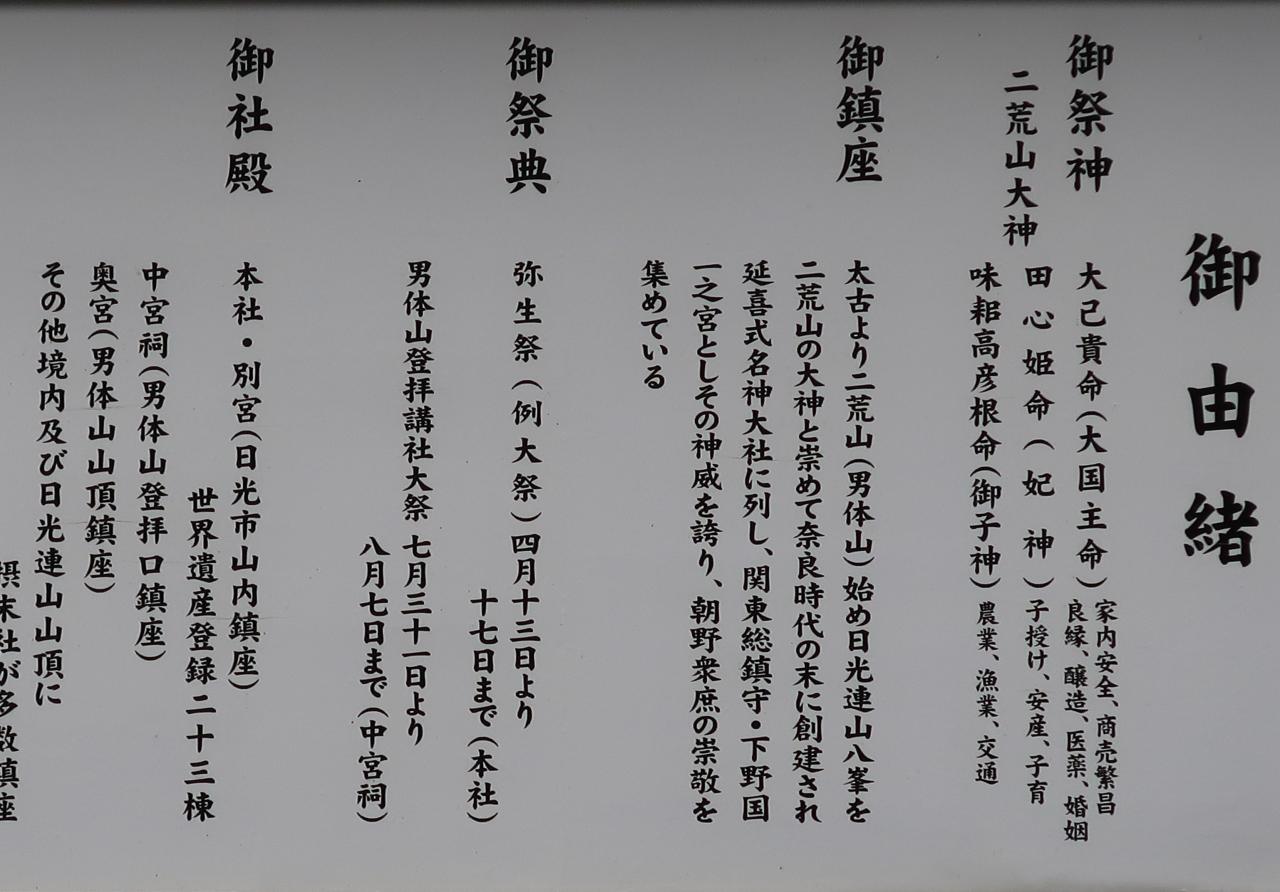 御由緒
御祭神
二荒山大神
大己貴命(大国主命)家内安全、商売繁昌
良縁、醸造、医薬、婚姻
田心姫命(妃神)子授け、安産、子育
味耜高彦根命(御子神)農業、漁業、交通
御鎮座
太古より二荒山(男体山)始め日光連山八峯を
二荒山の大神と崇めて奈良時代の末に創建され
延喜式名神大社に列し、関東総鎮守・下野国
一之宮としその神威を誇り、朝野衆庶の崇敬を
集めている
御祭典
弥生祭(例大祭)四月十三日より
十七日まで(本社)
男体山登拝講社大祭 七月三十一日より
八月七日まで(中宮祠)
御社殿
本社・別宮(日光市山内鎮座)
世界遺産登録二十三棟
中宮祠(男体山登拝口鎮座)
奥宮(男体山山頂鎮座)
その他境内及び日光連山山頂に
摂末社が多数鎮座